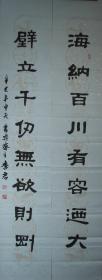 海納百川有容迺大
壁立千仞無欲則剛